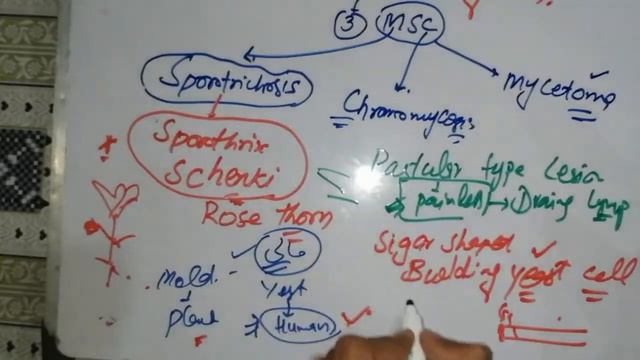 ③ MSC
Sporotrichosis
Chromomycosis
mycetoma
Sporothrix
Schenki
Rose thorn
Pastular type lesion
painless → Draing lymp
Sigar shaped
Building yeast cell
Mold
plant
Yest
Human